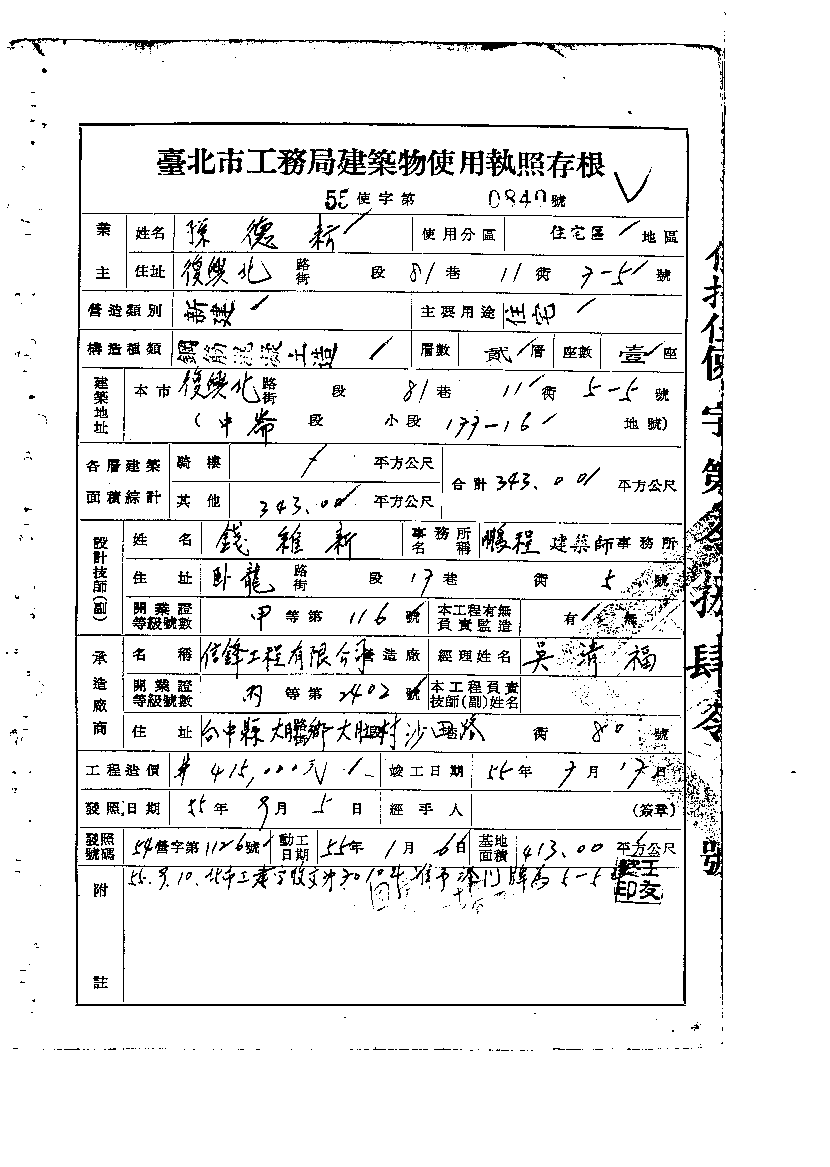 臺北市工務局建築物使用執照存根
55使字第 0840號
業主 姓名 孫德新 使用分區 住宅區 地區
住址 復興北 路街 段 81巷 11衖 7-5 號
營造類別 新建 主要用途 住宅
構造種類 鋼筋混凝土造 層數 貳層 座數 壹座
建築地址 本市 復興北 路街 段 81巷 11衖 5-5 號
(中崙 段 小段 177-16 地號)
各層建築面積綜計 騎樓 / 平方公尺 合計 343.00 平方公尺
其他 343.00 平方公尺
設計技師(副) 姓名 錢維新 事務所名稱 鵬程 建築師事務所
住址 臥龍 路街 段 17巷 衖 5 號
開業證等級號數 甲 等第 116 號 本工程有無負責監造 有 無
承造廠商 名稱 信鋒工程有限公司 營造廠 經理姓名 吳清福
開業證等級號數 丙 等第 2402 號 本工程負責技師(副)姓名
住址 台中縣大肚鄉大肚村沙田路 衖 80 號
工程造價 415,000元 竣工日期 55年7月17日
發照日期 55年9月5日 經手人 (簽章)
發照號碼 54營字第1126號 動工日期 55年1月6日 基地面積 413.00 平方公尺
附註 55.9.10.北市工建字收文 門牌為5-5